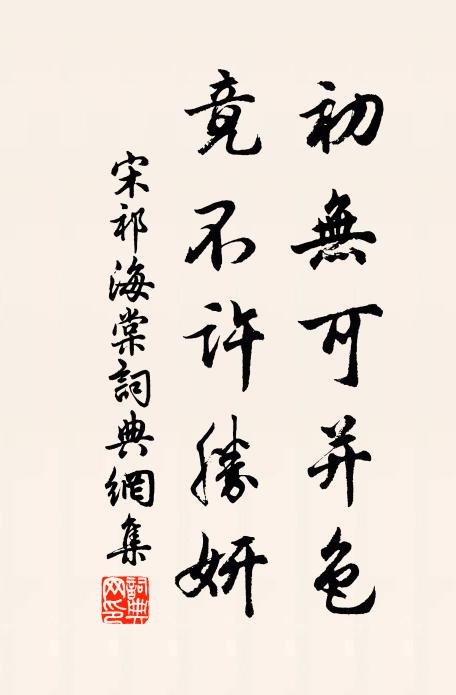 初無可并色
竟不許勝妍
宋祁海棠詞典網集
詞典網印